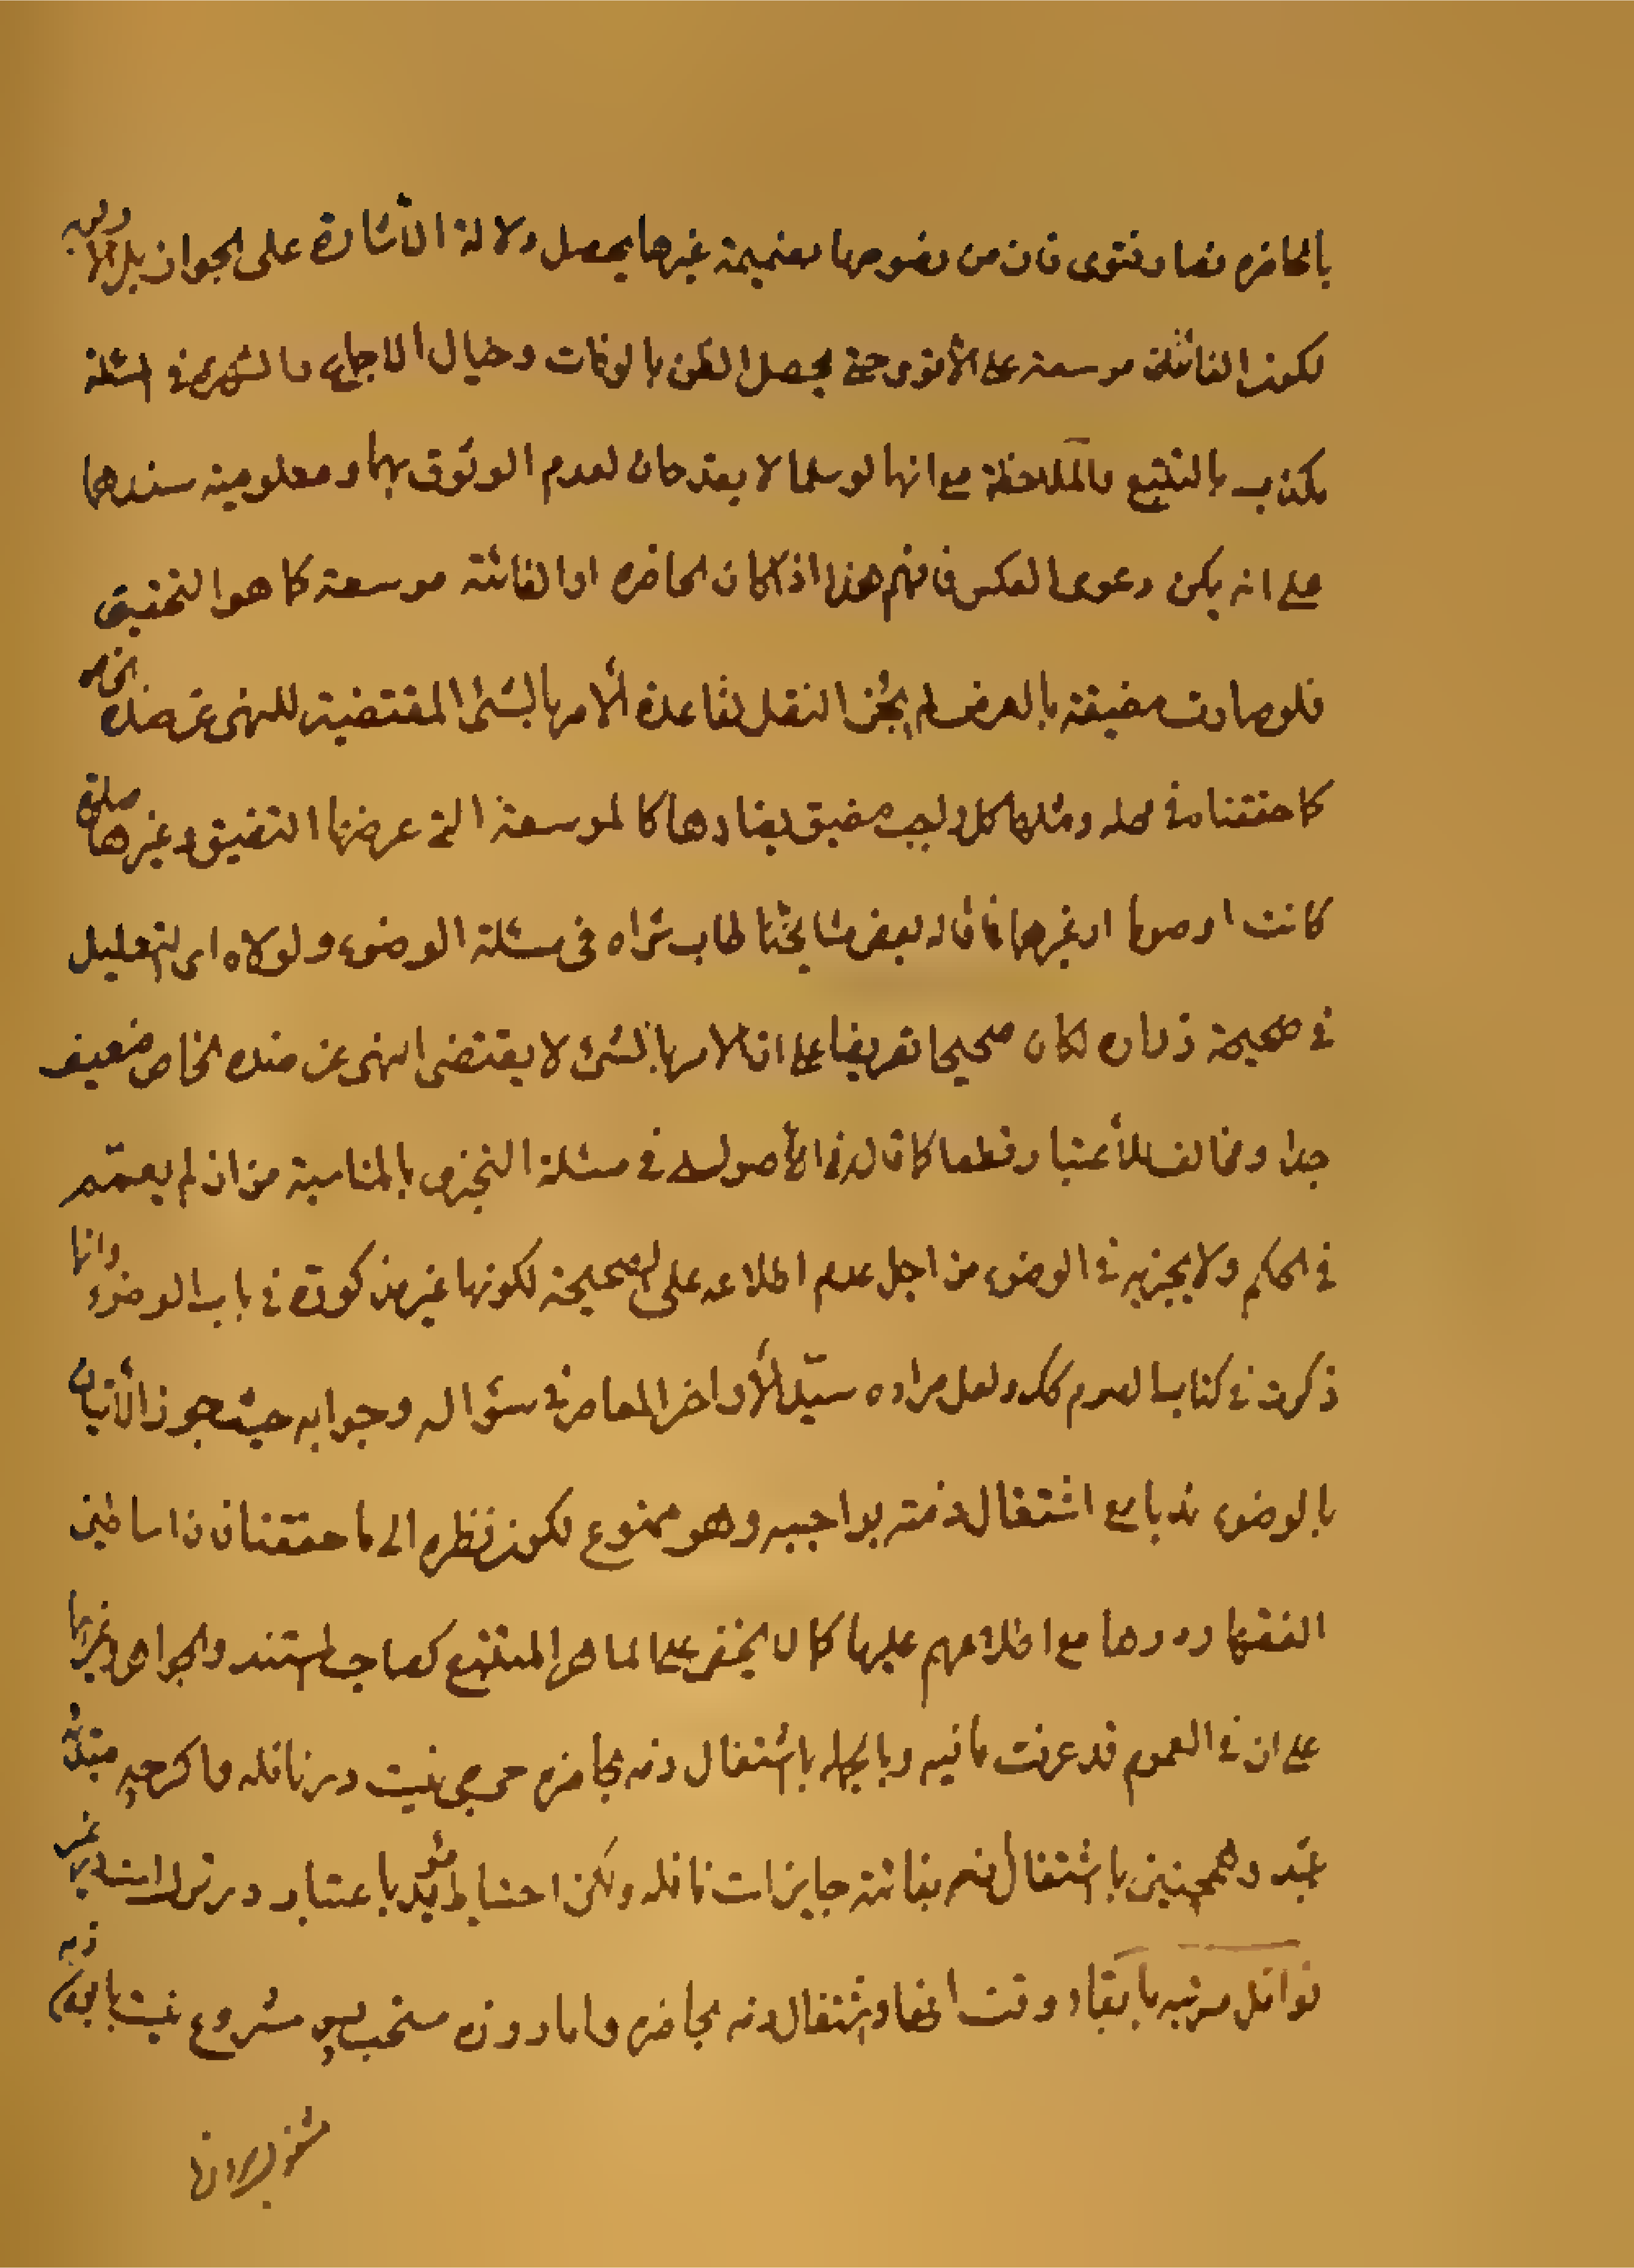 بالحاضره نصا وفتوى فان من نصوصها بضميمة غيرها يحصل دلالة الأشارة على الجواز بل الا ولويه
لكون الفائتة موسعة على الأقوى حتى يحصل الظن بالوفات وخيال الاجماع والشهرة في المسئلة
مكذب بالتتبع والملاحظة مع انها لو سلما لا يقدحان لعدم الوثوق بهما ومعلومية سندهما
على انه يمكن دعوى العكس فافهم هذا اذا كان الحاضره او الفائتة موسعة كما هو التحقيق
فلو صارت مضيقة بالعرض لم يجز النفل لقاعدة الأمر بالشئ المقتضية للنهى عن ضده الخاص
كما حققنا في محله ومثلها كل واجب مضيق يضادها كالموسعة التي عرضها التضيق وغيرها صلوة
كانت او صوما او غيرهما فما قاله بعض مشايخنا طاب ثراه في مسئلة الوضوء ولولاه اى التعليل
في صحيحة زراره لكان صحيحا تفريعا على ان الامر بالشئ لا يقتضى النهى عن ضده الخاص ضعيف
جدا ومخالف للأعتبار قطعا كما قاله في الأصول في مسئلة التجزى بالمناسبة من ان لم يعمم
في الحكم ولا يجزيه في الوضوء من اجل عدم اطلاعه على الصحيحة لكونها غير مذكورة في باب الوضوء وانها
ذكرت في كتاب الصوم كك ولعل مراده سيد الأواخر المعاصر في سؤاله وجوابه حيث جوز الأتيان
بالوضوء ندبا مع اشتغال ذمته بواجبه وهو ممنوع لكون نظره الى ما حققنا فان اساطين
الفقها ردوها مع اطلاعهم عليها كما لا يخفى على الماهر المتتبع كصاحب المستند والجواهر وغيرهما
على ان في العموم قد عرفت ما فيه وبالجمله باشتغال ذمه بحاضره صحيح نيست در نافله و اكرچه مقيد
عبد و همچنين باشتغال ذمه بفائته جايز است نافله ولكن احتياط مؤكد باعتبار در ترك است در غير
نوافل مرتبه با بقاء وقت انها و اشتغال ذمه بحاضره و اما روزه مستحب پس مشروع نيست با اينكه ذمه
مشغول بر انها